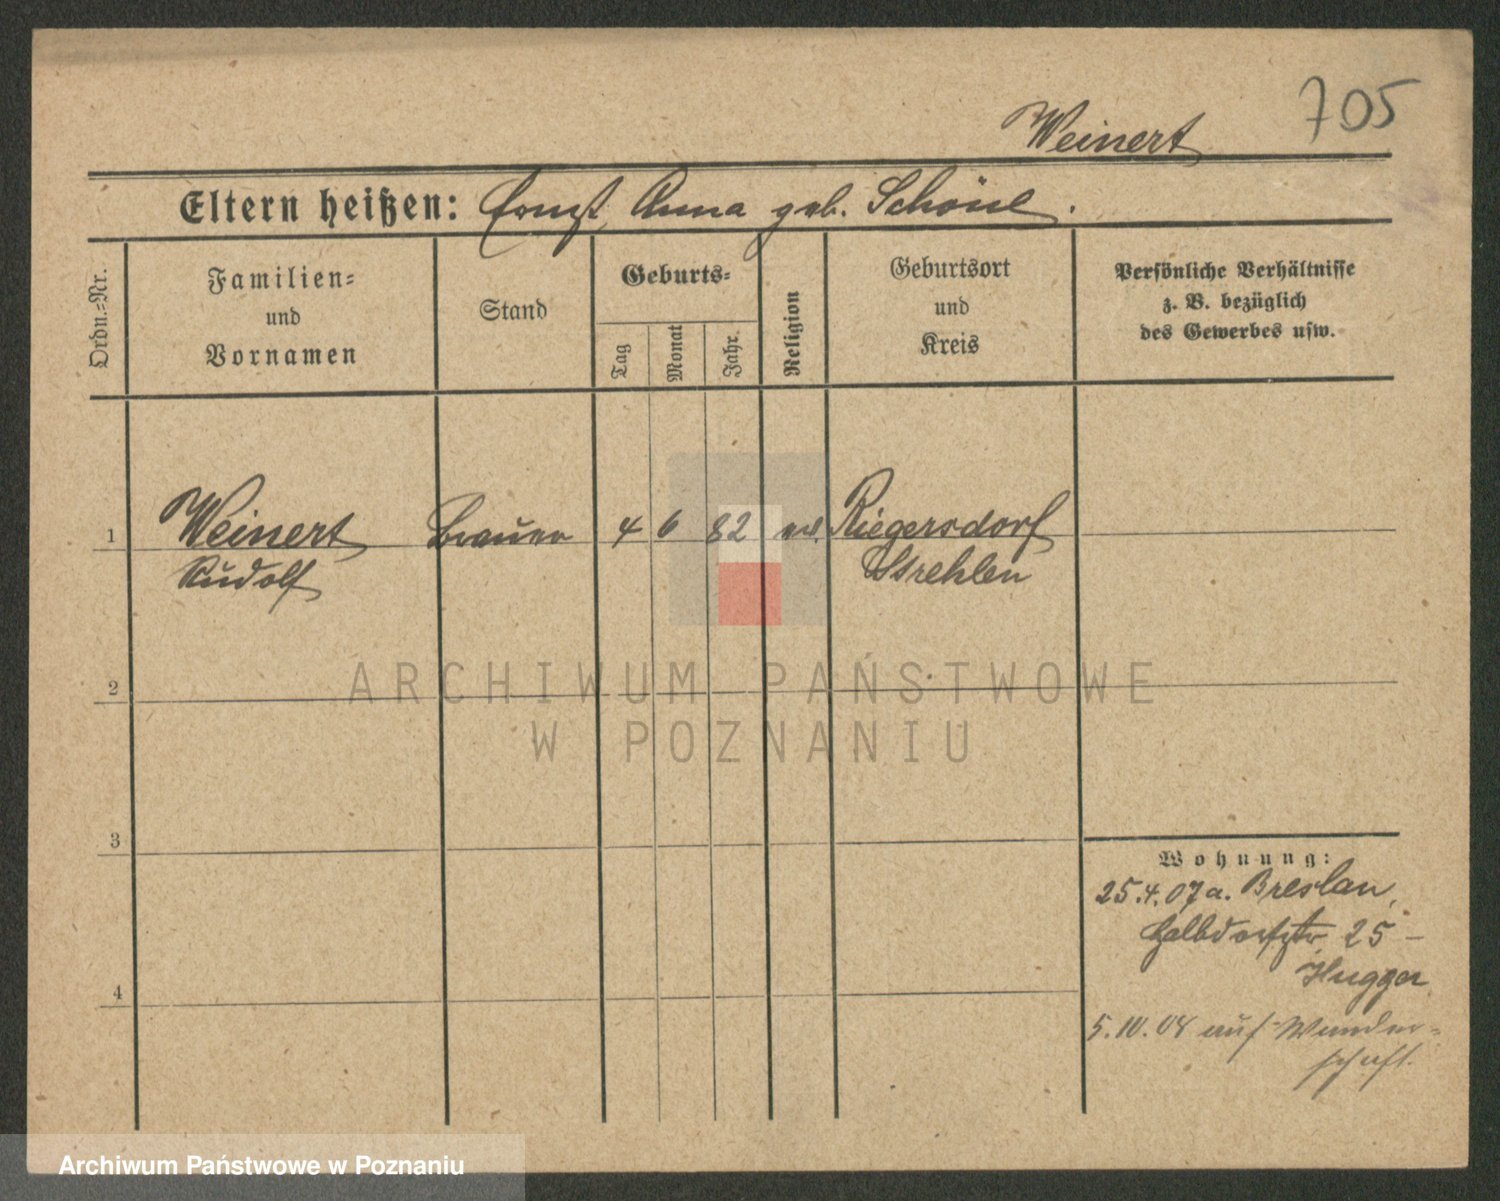 705
Weinert
Eltern heißen: Ernst, Anna geb. Schönl.
Ordn.-Nr.
Familien-
und
Vornamen
Stand
Geburts-
Tag
Monat
Jahr.
Religion
Geburtsort
und
Kreis
Persönliche Verhältnisse
z. B. bezüglich
des Gewerbes usw.
1
Weinert
Rudolf
Brauer
4
6
82
ev.
Riegersdorf
Strehlen
2
3
4
Wohnung:
25.4.07 a. Breslau,
25 –
Hugger
5.10.08 auf Wander-
schaft.
ARCHIWUM PAŃSTWOWE
W POZNANIU
Archiwum Państwowe w Poznaniu